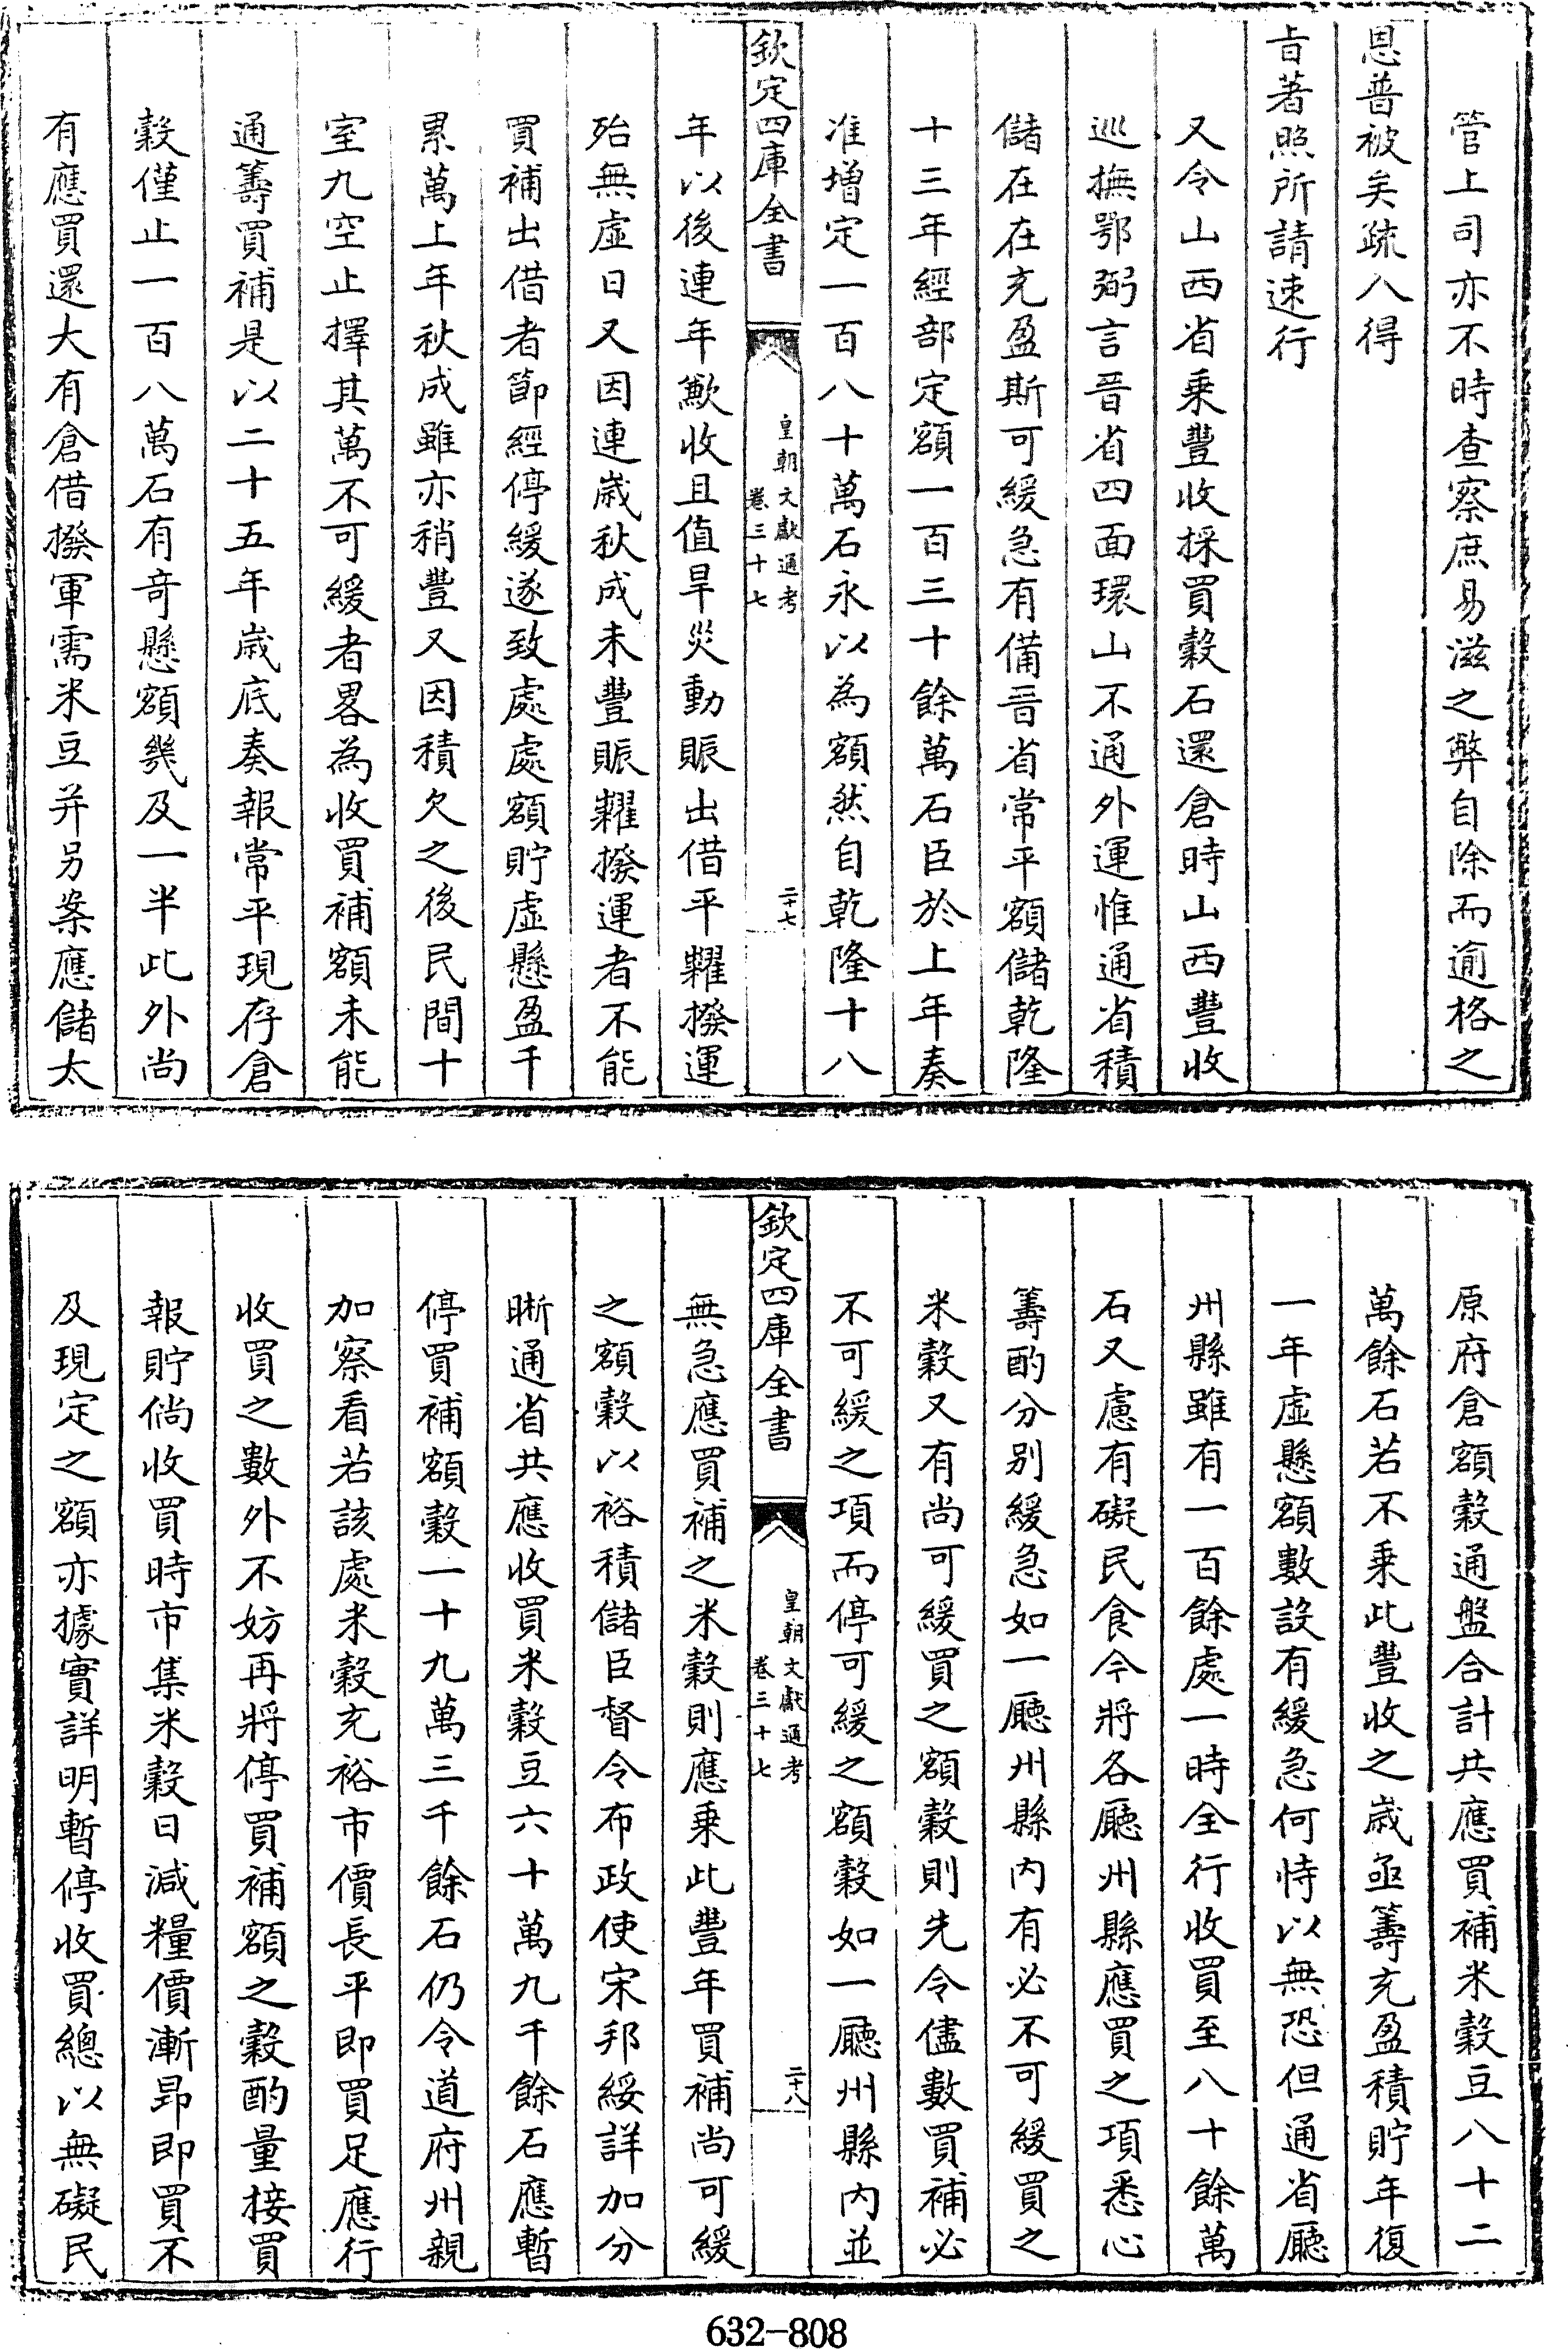 管上司亦不時查察庶易滋之弊自除而逾格之
恩普被矣疏入得
㫖著照所請速行
又令山西省乗豐收採買穀石還倉時山西豐收
巡撫鄂弼言晉省四面環山不通外運惟通省積
儲在在充盈斯可緩急有備晉省常平額儲乾隆
十三年經部定額一百三十餘萬石臣於上年奏
准增定一百八十萬石永以為額然自乾隆十八
欽定四庫全書
皇朝文獻通考
卷三十七
二十七
年以後連年歉收且值旱災動賑出借平糶撥運
殆無虛日又因連歲秋成未豐賑糶撥運者不能
買補出借者節經停緩遂致處處額貯虛懸盈千
累萬上年秋成雖亦稍豐又因積欠之後民間十
室九空止擇其萬不可緩者畧為收買補額未能
通籌買補是以二十五年歲底奏報常平現存倉
穀僅止一百八萬石有竒懸額幾及一半此外尚
有應買還大有倉借撥軍需米豆并另案應儲太
原府倉額穀通盤合計共應買補米穀豆八十二
萬餘石若不乗此豐收之歲亟籌充盈積貯年復
一年虛懸額數設有緩急何恃以無恐但通省廳
州縣雖有一百餘處一時全行收買至八十餘萬
石又慮有礙民食今將各廳州縣應買之項悉心
籌酌分别緩急如一廳州縣内有必不可緩買之
米穀又有尚可緩買之額穀則先令儘數買補必
不可緩之項而停可緩之額穀如一廳州縣内並
欽定四庫全書
皇朝文獻通考
卷三十七
二十八
無急應買補之米穀則應乗此豐年買補尚可緩
之額穀以裕積儲臣督令布政使宋邦綏詳加分
晰通省共應收買米穀豆六十萬九千餘石應暫
停買補額穀一十九萬三千餘石仍令道府州親
加察看若該處米穀充裕市價長平即買足應行
收買之數外不妨再將停買補額之穀酌量接買
報貯倘收買時市集米穀日減糧價漸昻即買不
及現定之額亦據實詳明暫停收買總以無礙民
632-808